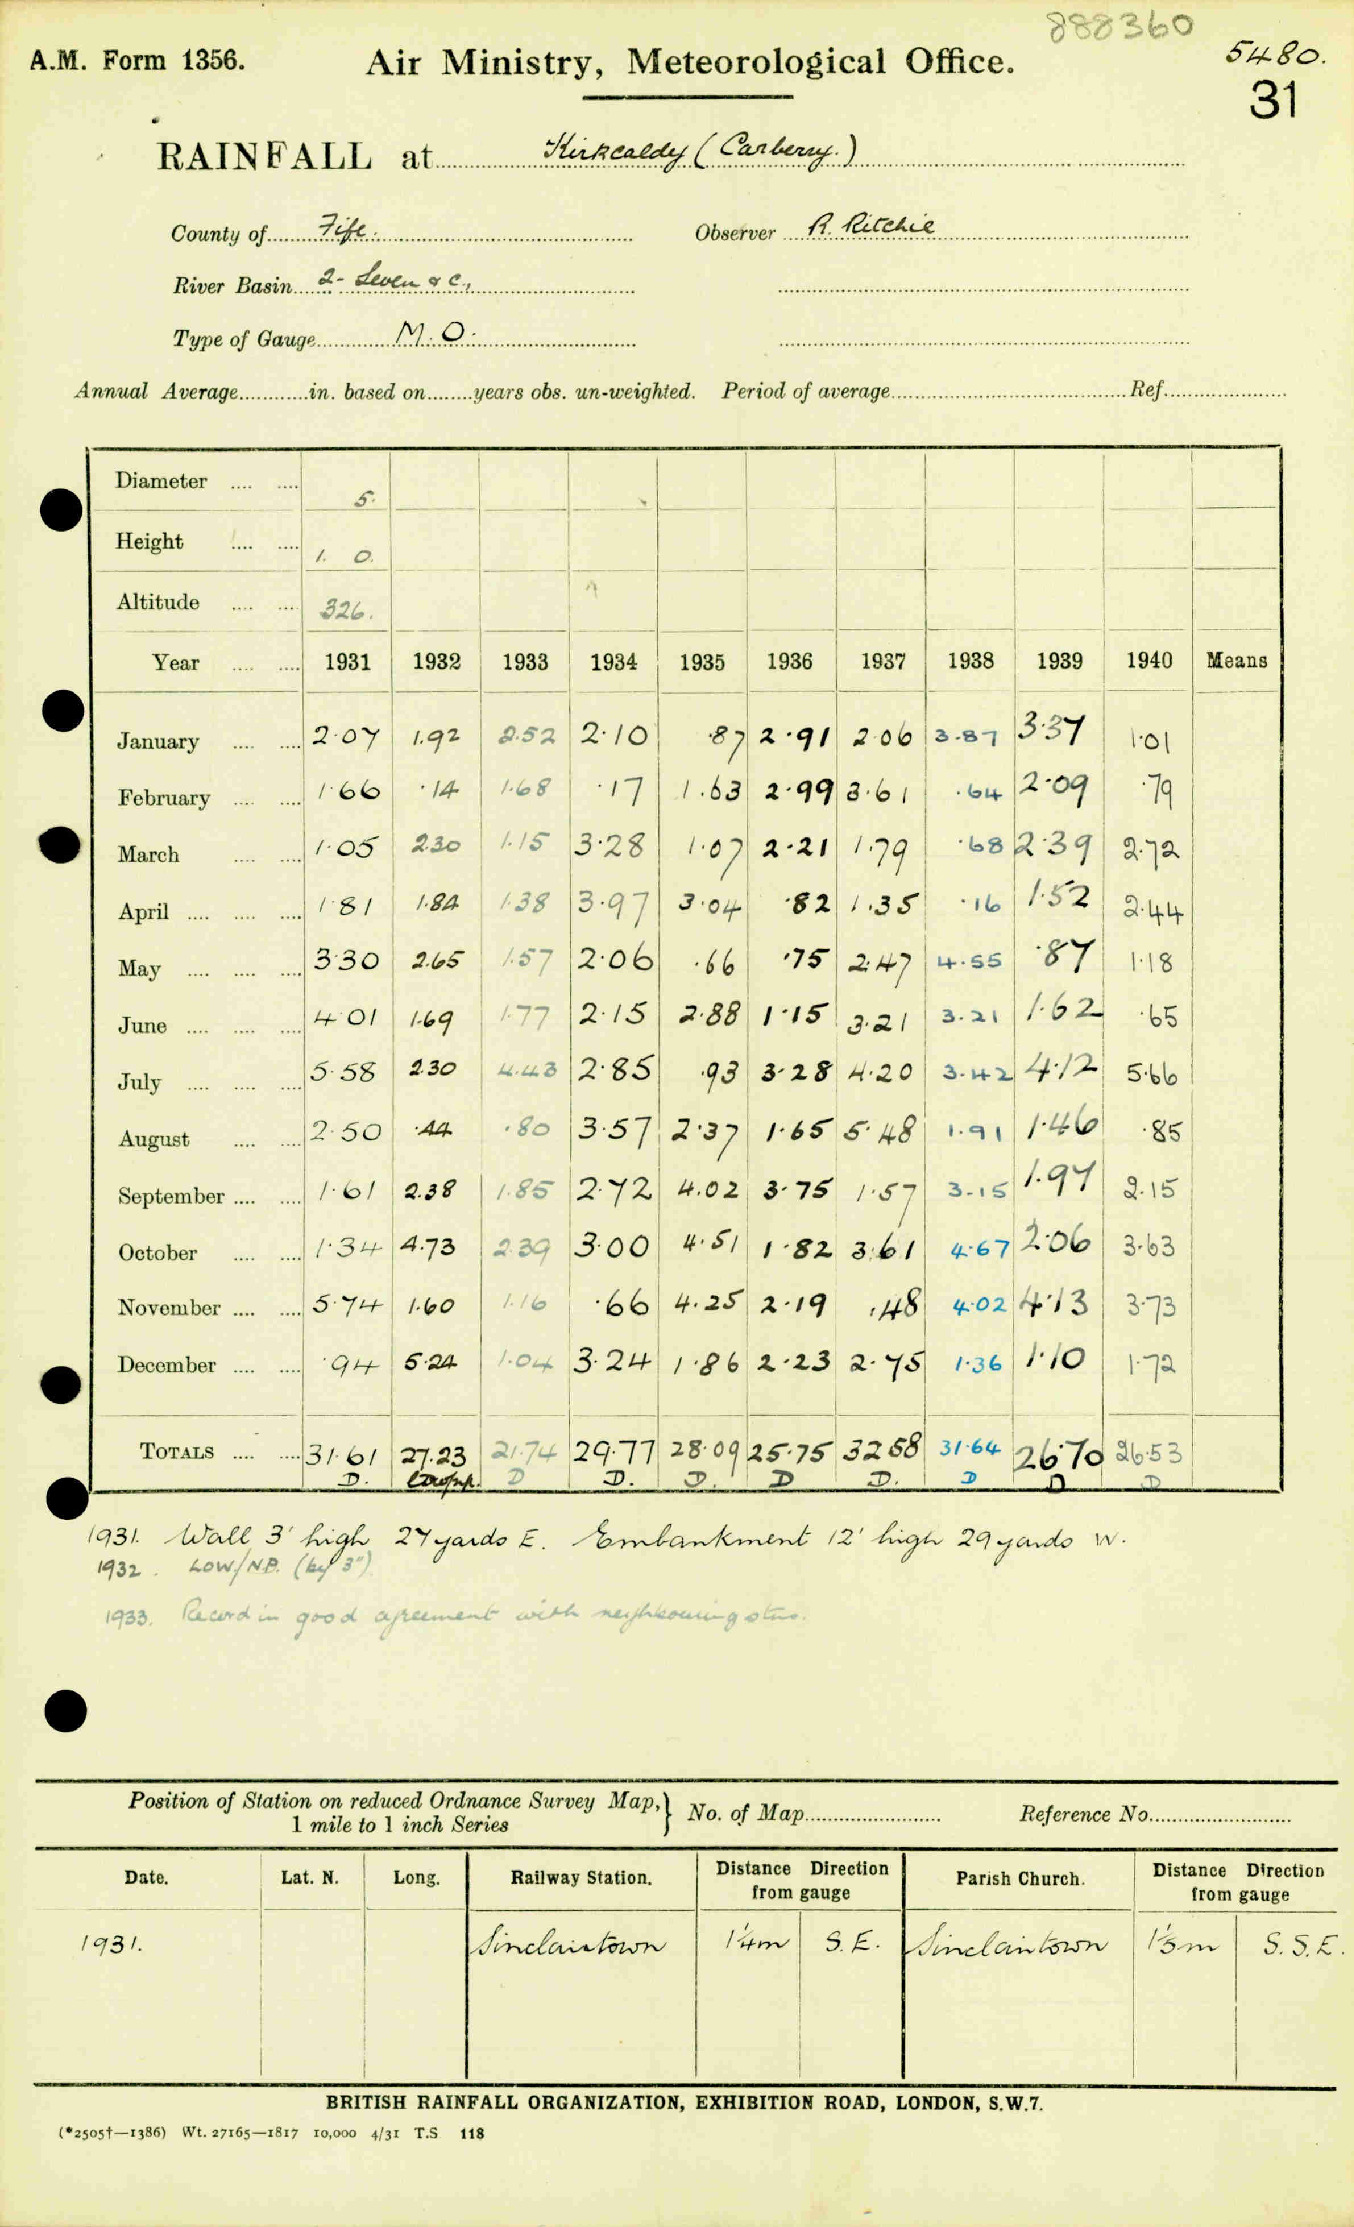 888360
A.M. Form 1356. Air Ministry, Meteorological Office. 5480.
31
RAINFALL at Kirkcaldy (Carberry.)
County of Fife. Observer R. Ritchie
River Basin 2- Leven & c.,
Type of Gauge M.O.
Annual Average in. based on years obs. un-weighted. Period of average Ref.
Diameter 5.
Height 1. 0.
Altitude 326.
Year 1931 1932 1933 1934 1935 1936 1937 1938 1939 1940 Means
January 2.07 1.92 2.52 2.10 .87 2.91 2.06 3.87 3.37 1.01
February 1.66 .14 1.68 .17 1.63 2.99 3.61 .64 2.09 .79
March 1.05 2.30 1.15 3.28 1.07 2.21 1.79 .68 2.39 2.72
April 1.81 1.84 1.38 3.97 3.04 .82 1.35 .16 1.52 2.44
May 3.30 2.65 1.57 2.06 .66 .75 2.47 4.55 .87 1.18
June 4.01 1.69 1.77 2.15 2.88 1.15 3.21 3.21 1.62 .65
July 5.58 2.30 4.43 2.85 .93 3.28 4.20 3.42 4.12 5.66
August 2.50 .44 .80 3.57 2.37 1.65 5.48 1.91 1.46 .85
September 1.61 2.38 1.85 2.72 4.02 3.75 1.57 3.15 1.97 2.15
October 1.34 4.73 2.39 3.00 4.51 1.82 3.61 4.67 2.06 3.63
November 5.74 1.60 1.16 .66 4.25 2.19 .48 4.02 4.13 3.73
December .94 5.24 1.04 3.24 1.86 2.23 2.75 1.36 1.10 1.72
TOTALS 31.61 27.23 21.74 29.77 28.09 25.75 32.58 31.64 26.70 26.53
D. Comp. D D. D. D D. D D D
1931. Wall 3' high 27 yards E. Embankment 12' high 29 yards W.
1932. LOW/N.P. (by 3")
1933. Record in good agreement with neighbouring stns.
Position of Station on reduced Ordnance Survey Map,
1 mile to 1 inch Series } No. of Map Reference No.
Date. Lat. N. Long. Railway Station. Distance Direction from gauge Parish Church. Distance Direction from gauge
1931. Sinclairtown 1¼m S.E. Sinclairtown S.S.E.
BRITISH RAINFALL ORGANIZATION, EXHIBITION ROAD, LONDON, S.W.7.
(*2505†—1386) Wt. 27165—1817 10,000 4/31 T.S 118